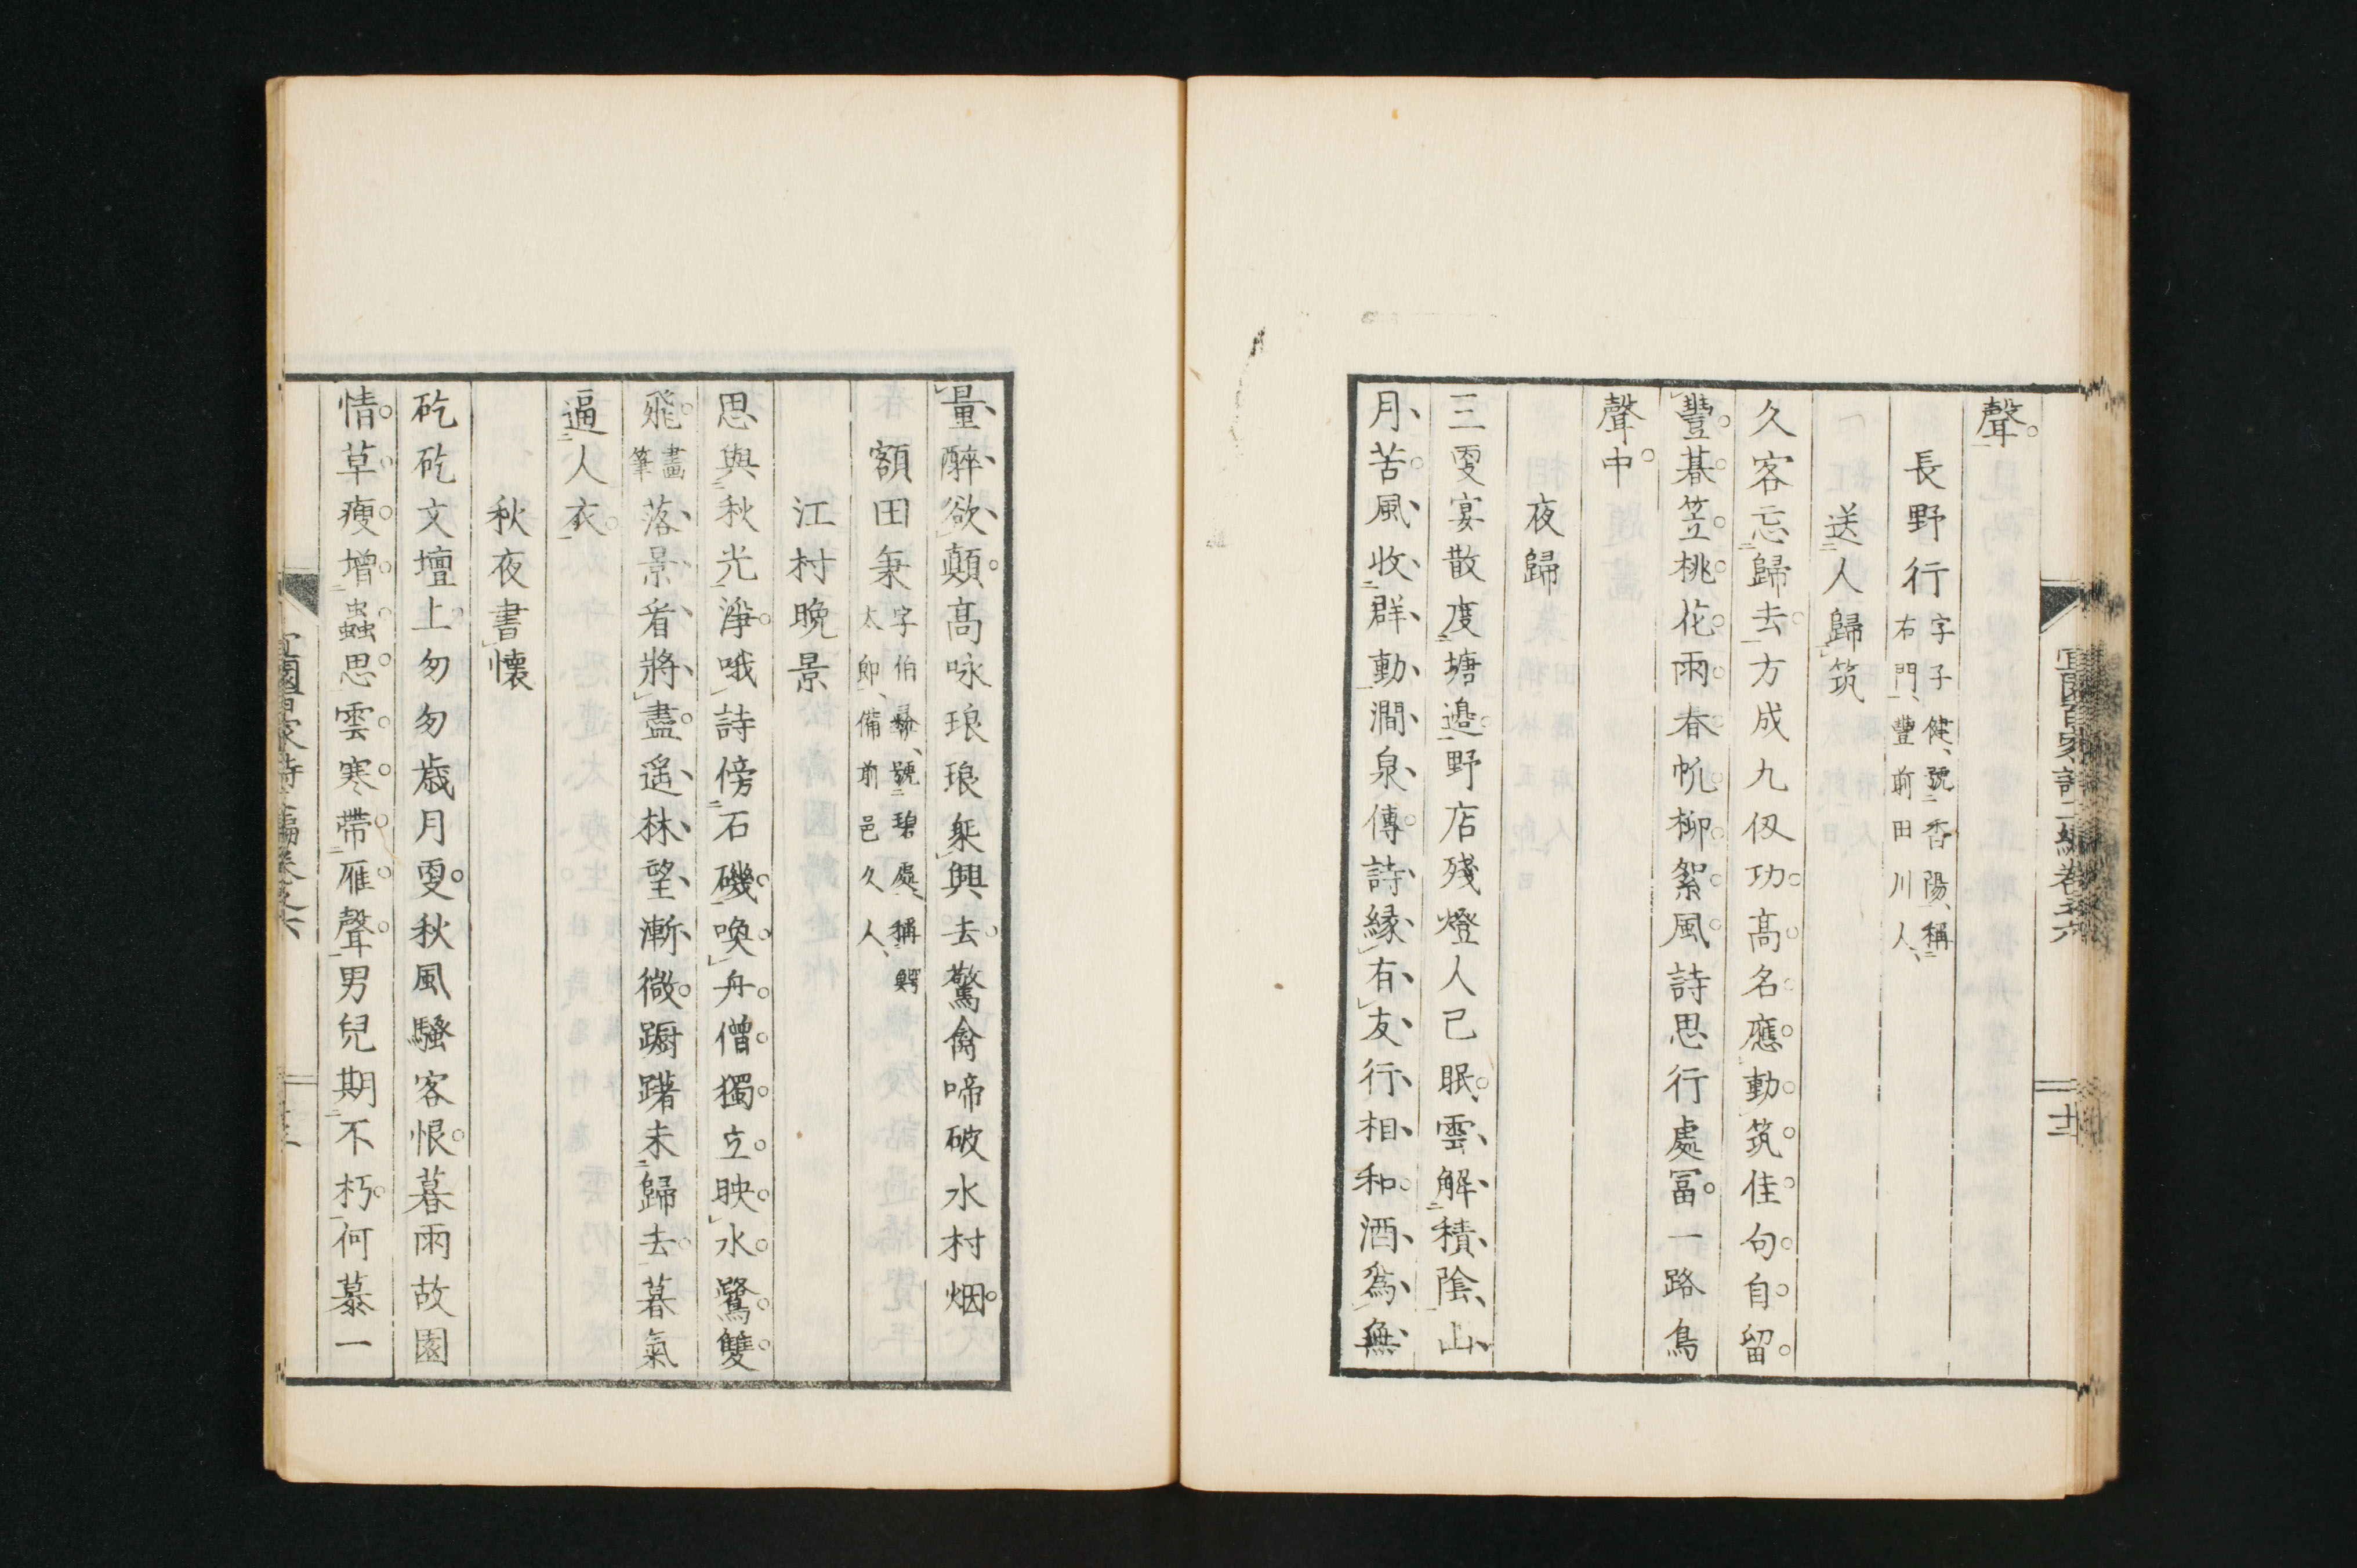 聲
長野行字子健號香陽稱
右門豐前田川人
送人歸筑
久客忘歸去方成九仭功高名應動筑佳句自留
豐暮笠桃花雨春帆柳絮風詩思行處冨一路鳥
聲中
夜歸
三更宴散度塘邉野店殘燈人已眠雲解積陰山
月苦風收群動澗泉傳詩縁有友行相和酒爲無
宜園百家詩二編卷之六
十二
量醉欲顛高咏琅琅乗興去驚禽啼破水村烟
額田秉字伯彜號碧處稱鰐
太郎備前邑久人
江村晩景
思與秋光淨哦詩傍石磯喚舟僧獨立映水鷺雙
飛畫筆落景看將盡遥林望漸微蹰躇未歸去暮氣
逼人衣
秋夜書懷
矻矻文壇上匆匆歳月更秋風騷客恨暮雨故園
情草瘦增蟲思雲寒帶雁聲男兒期不朽何慕一